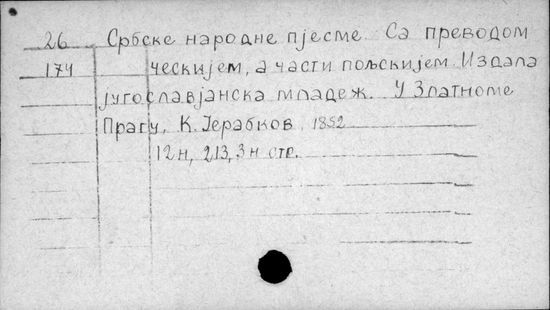 26 Србске народне пјесме. Са преводом
174 ческијем, а части пољскијем. Издала
југославјанска младеж. У Златноме
Прагу, К. Јерабков, 1852
12н, 213, 3н стр.